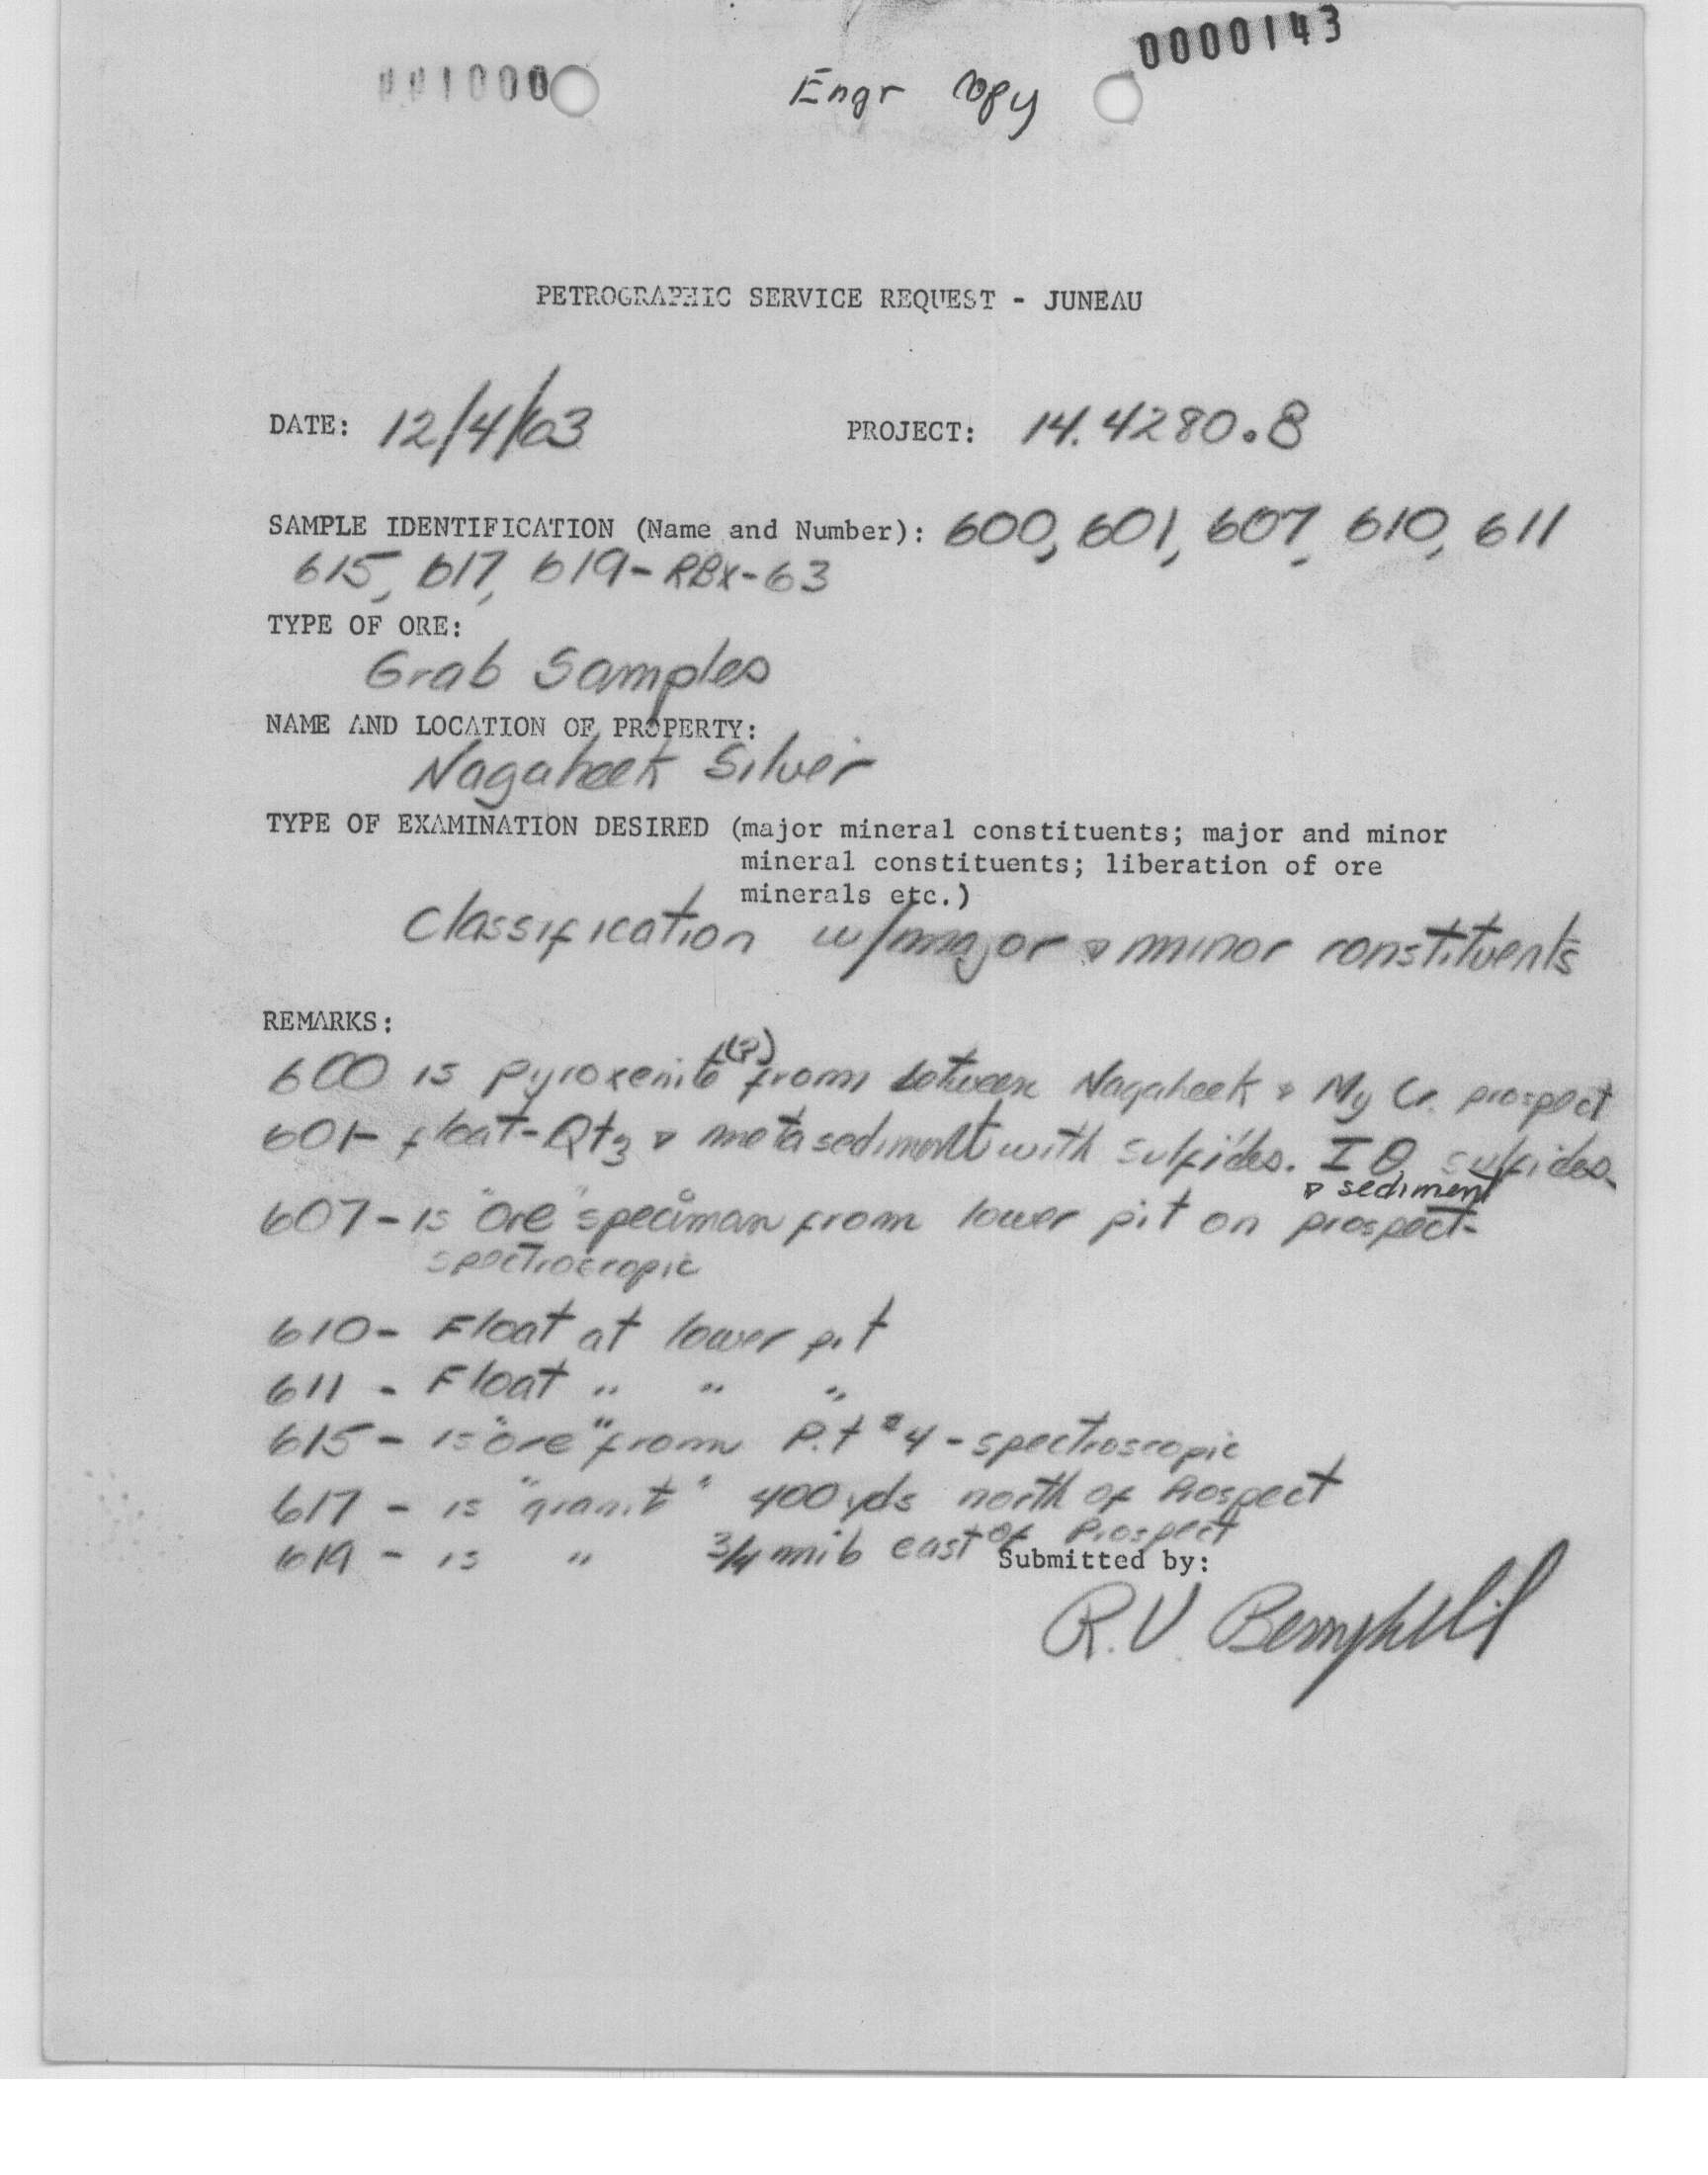 0000143
001000
Engr Copy
PETROGRAPHIC SERVICE REQUEST - JUNEAU
DATE: 12/4/63 PROJECT: 14.4280.8
SAMPLE IDENTIFICATION (Name and Number): 600, 601, 607, 610, 611
615, 617, 619-RBX-63
TYPE OF ORE:
Grab Samples
NAME AND LOCATION OF PROPERTY:
Nagaheek Silver
TYPE OF EXAMINATION DESIRED (major mineral constituents; major and minor
mineral constituents; liberation of ore
minerals etc.)
Classification w/major & minor constituents
REMARKS:
600 is pyroxenite (?) from between Nagaheek & My Cr. prospect
601- float-Qtz & metasediment with sulfides. ID sulfides
& sediment
607-is "ore" speciman from lower pit on prospect-
spectroscopic
610- Float at lower pit
611 - Float " " "
615 - is "ore" from Pit #4 - spectroscopic
617 - is "granit" 400 yds north of Prospect
619 - is " 3/4 mile east of Prospect
Submitted by:
R.V. Berryhill